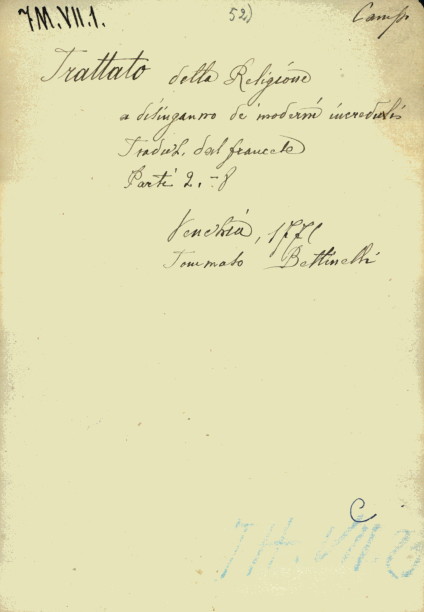 7M.VII.1. 52) Camp
Trattato della Religione
a disinganno de' moderni increduli
Traduz. dal francese
Parti 2. - 8
Venezia, 1771
Tommaso Bettinelli
C
7 H. VII. 23